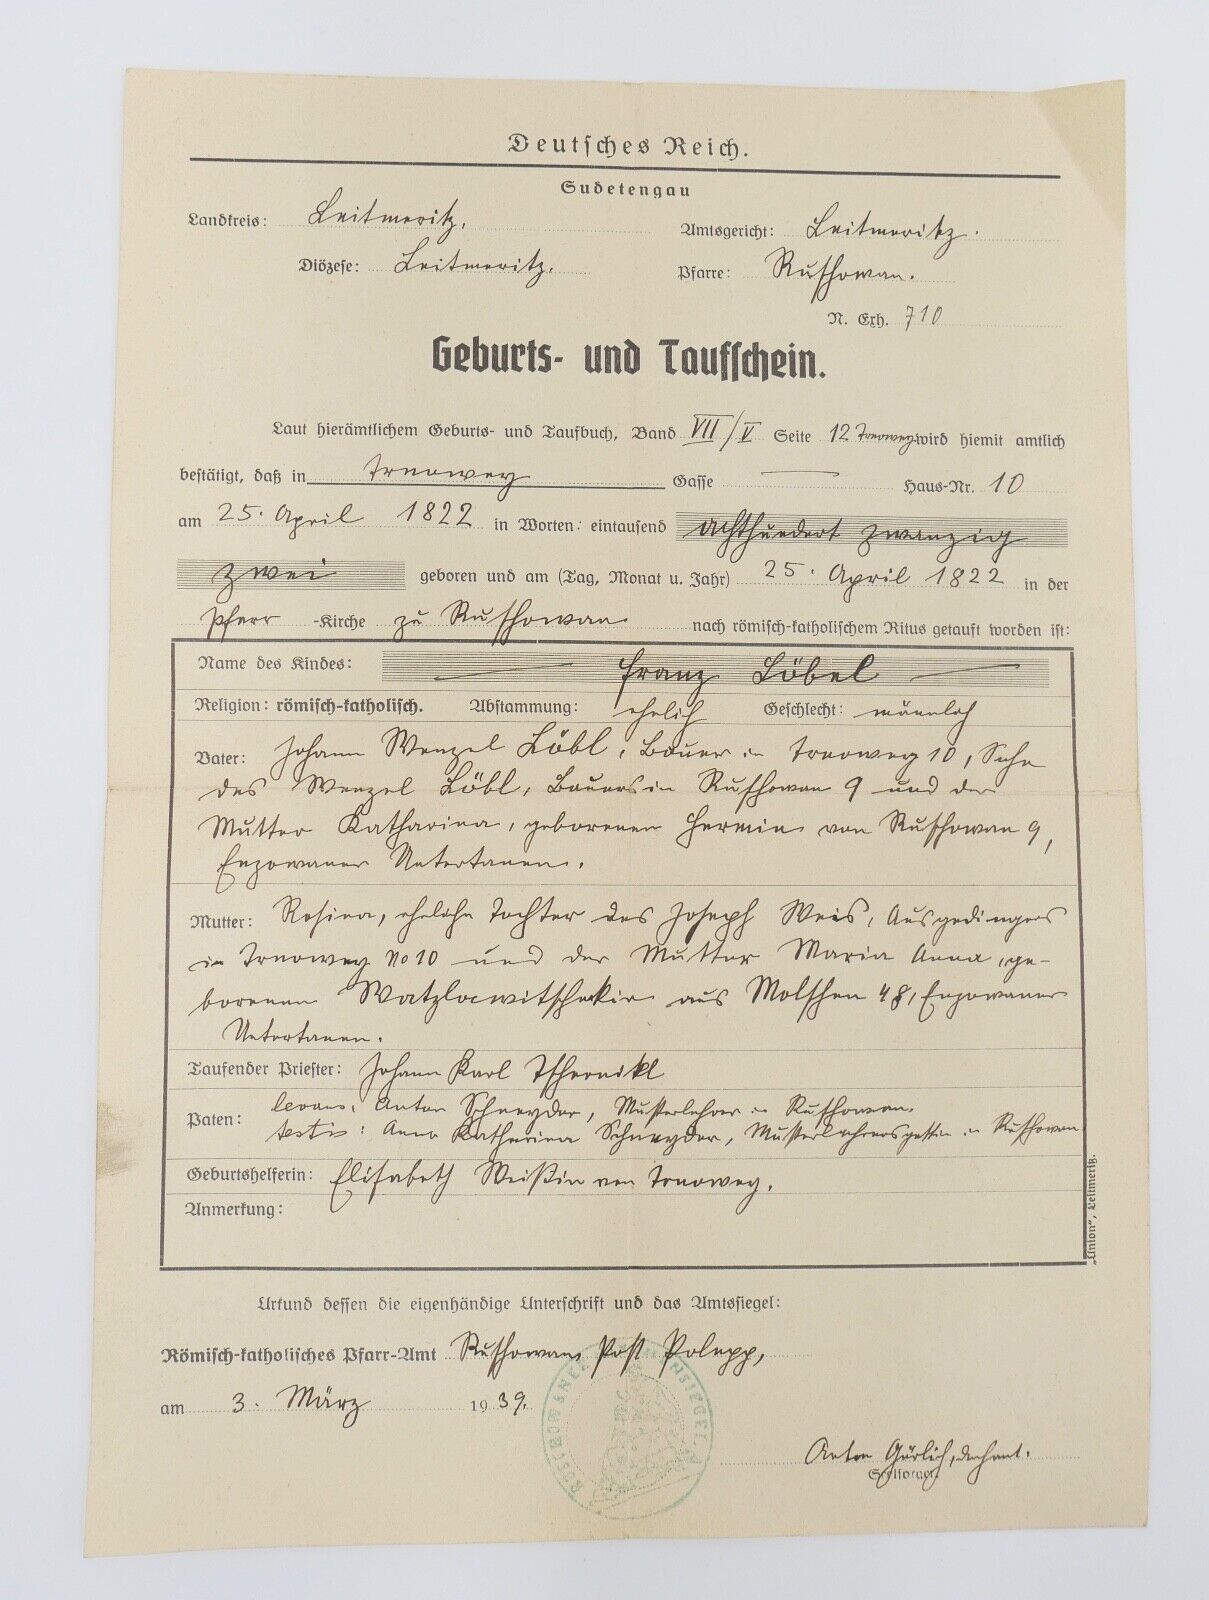 Deutsches Reich.
Sudetengau
Landkreis: Leitmeritz. Amtsgericht: Leitmeritz.
Diözese: Leitmeritz. Pfarre: Ruschowan.
N. Exh. 710
Geburts- und Taufschein.
Laut hierämtlichem Geburts- und Taufbuch, Band VII/V Seite 12 Trnoweg wird hiemit amtlich
bestätigt, daß in Trnoweg Gasse — Haus-Nr. 10
am 25. April 1822 in Worten: eintausend achthundert zwanzig
zwei geboren und am (Tag, Monat u. Jahr) 25. April 1822 in der
Pfarr -Kirche zu Ruschowan nach römisch-katholischem Ritus getauft worden ist:
Name des Kindes: — Franz Löbel —
Religion: römisch-katholisch. Abstammung: ehelich Geschlecht: männlich
Vater: Johann Wenzel Löbl, Bauer in Trnoweg 10, Sohn
des Wenzel Löbl, Bauers in Ruschowan 9 und der
Mutter Katharina, geborenen Hermin von Ruschowan 9,
Enzowaner Untertanen.
Mutter: Rosina, eheliche Tochter des Joseph Weis, Ausgedingers
in Trnoweg No 10 und der Mutter Maria Anna, ge-
borenen Watzlawitschekin aus Molschen 48, Enzowaner
Untertanen.
Taufender Priester: Johann Karl Tschernikl
Paten: levans: Anton Schneyder, Musterlehrer in Ruschowan.
testis: Anna Katherina Schneyder, Musterlehrersgattin in Ruschowan
Geburtshelferin: Elisabeth Weißin von Trnoweg.
Anmerkung:
"Union", Leitmeritz.
Urkund dessen die eigenhändige Unterschrift und das Amtssiegel:
Römisch-katholisches Pfarr-Amt Ruschowan, Post Polepp,
am 3. März 1939.
Anton Görlich, Dechant.
Seelsorger.